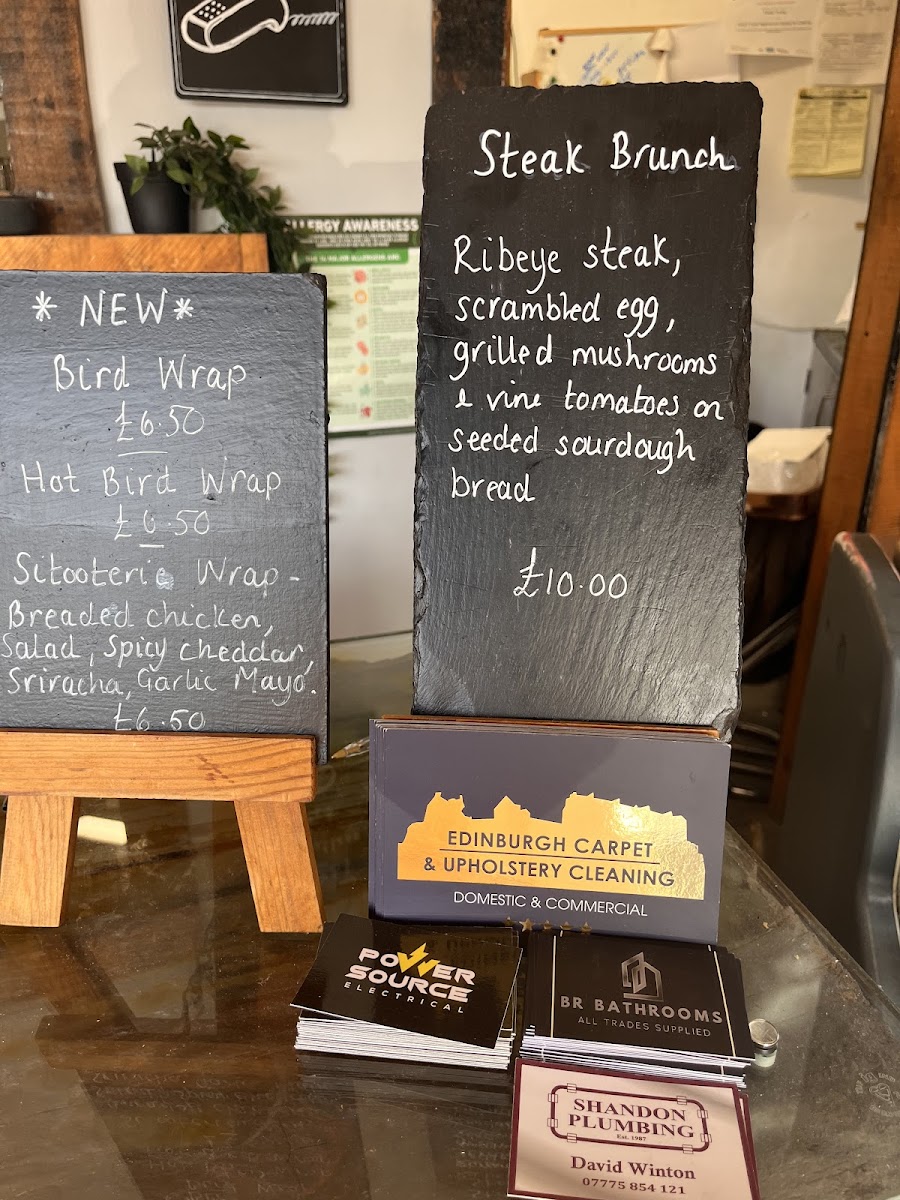 * NEW *
Bird Wrap
£6.50
Hot Bird Wrap
£6.50
Sitooterie Wrap -
Breaded chicken,
Salad, Spicy cheddar,
Sriracha, Garlic Mayo.
£6.50
ALLERGY AWARENESS
Steak Brunch
Ribeye steak,
scrambled egg,
grilled mushrooms
& vine tomatoes on
seeded sourdough
bread
£10.00
EDINBURGH CARPET
& UPHOLSTERY CLEANING
DOMESTIC & COMMERCIAL
POWER
SOURCE
ELECTRICAL
BR BATHROOMS
ALL TRADES SUPPLIED
SHANDON
PLUMBING
Est. 1987
David Winton
07775 854 121